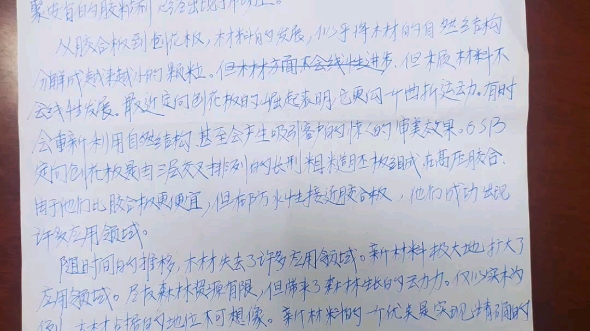 聚安旨的胶粘剂
从胶合板到刨花板,木材料的发展,似乎将木材的自然结构
分解成越来越小的颗粒。但木材方面不会线性进步,但木质材料不
会线性发展。最近定向刨花板的崛起表明,它更向于曲折运动。有时
会重新利用自然结构,甚至会产生吸引者的惊人的审美效果。OSB
定向刨花板是由三层交叉排列的长形粗糙木板组成,在高压胶合,
由于他们比胶合板更便宜,但在防水性接近胶合板,他们成功出现
许多应用领域。
随时间的推移,木材失去了许多应用领域。新材料极大地扩大了
应用领域。尽管森林资源有限,但带来了森林生长的云动力。仅以实木为
例,木材占据的地位不可想像。新材料的一个优先是实现